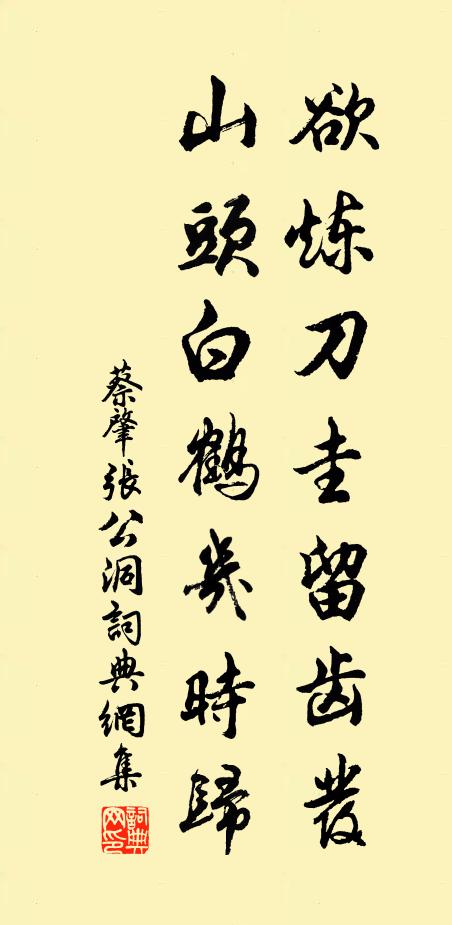 欲炼刀圭留齿发
山頭白鶴幾時歸
蔡肇張公洞詞典網集
詞典网印